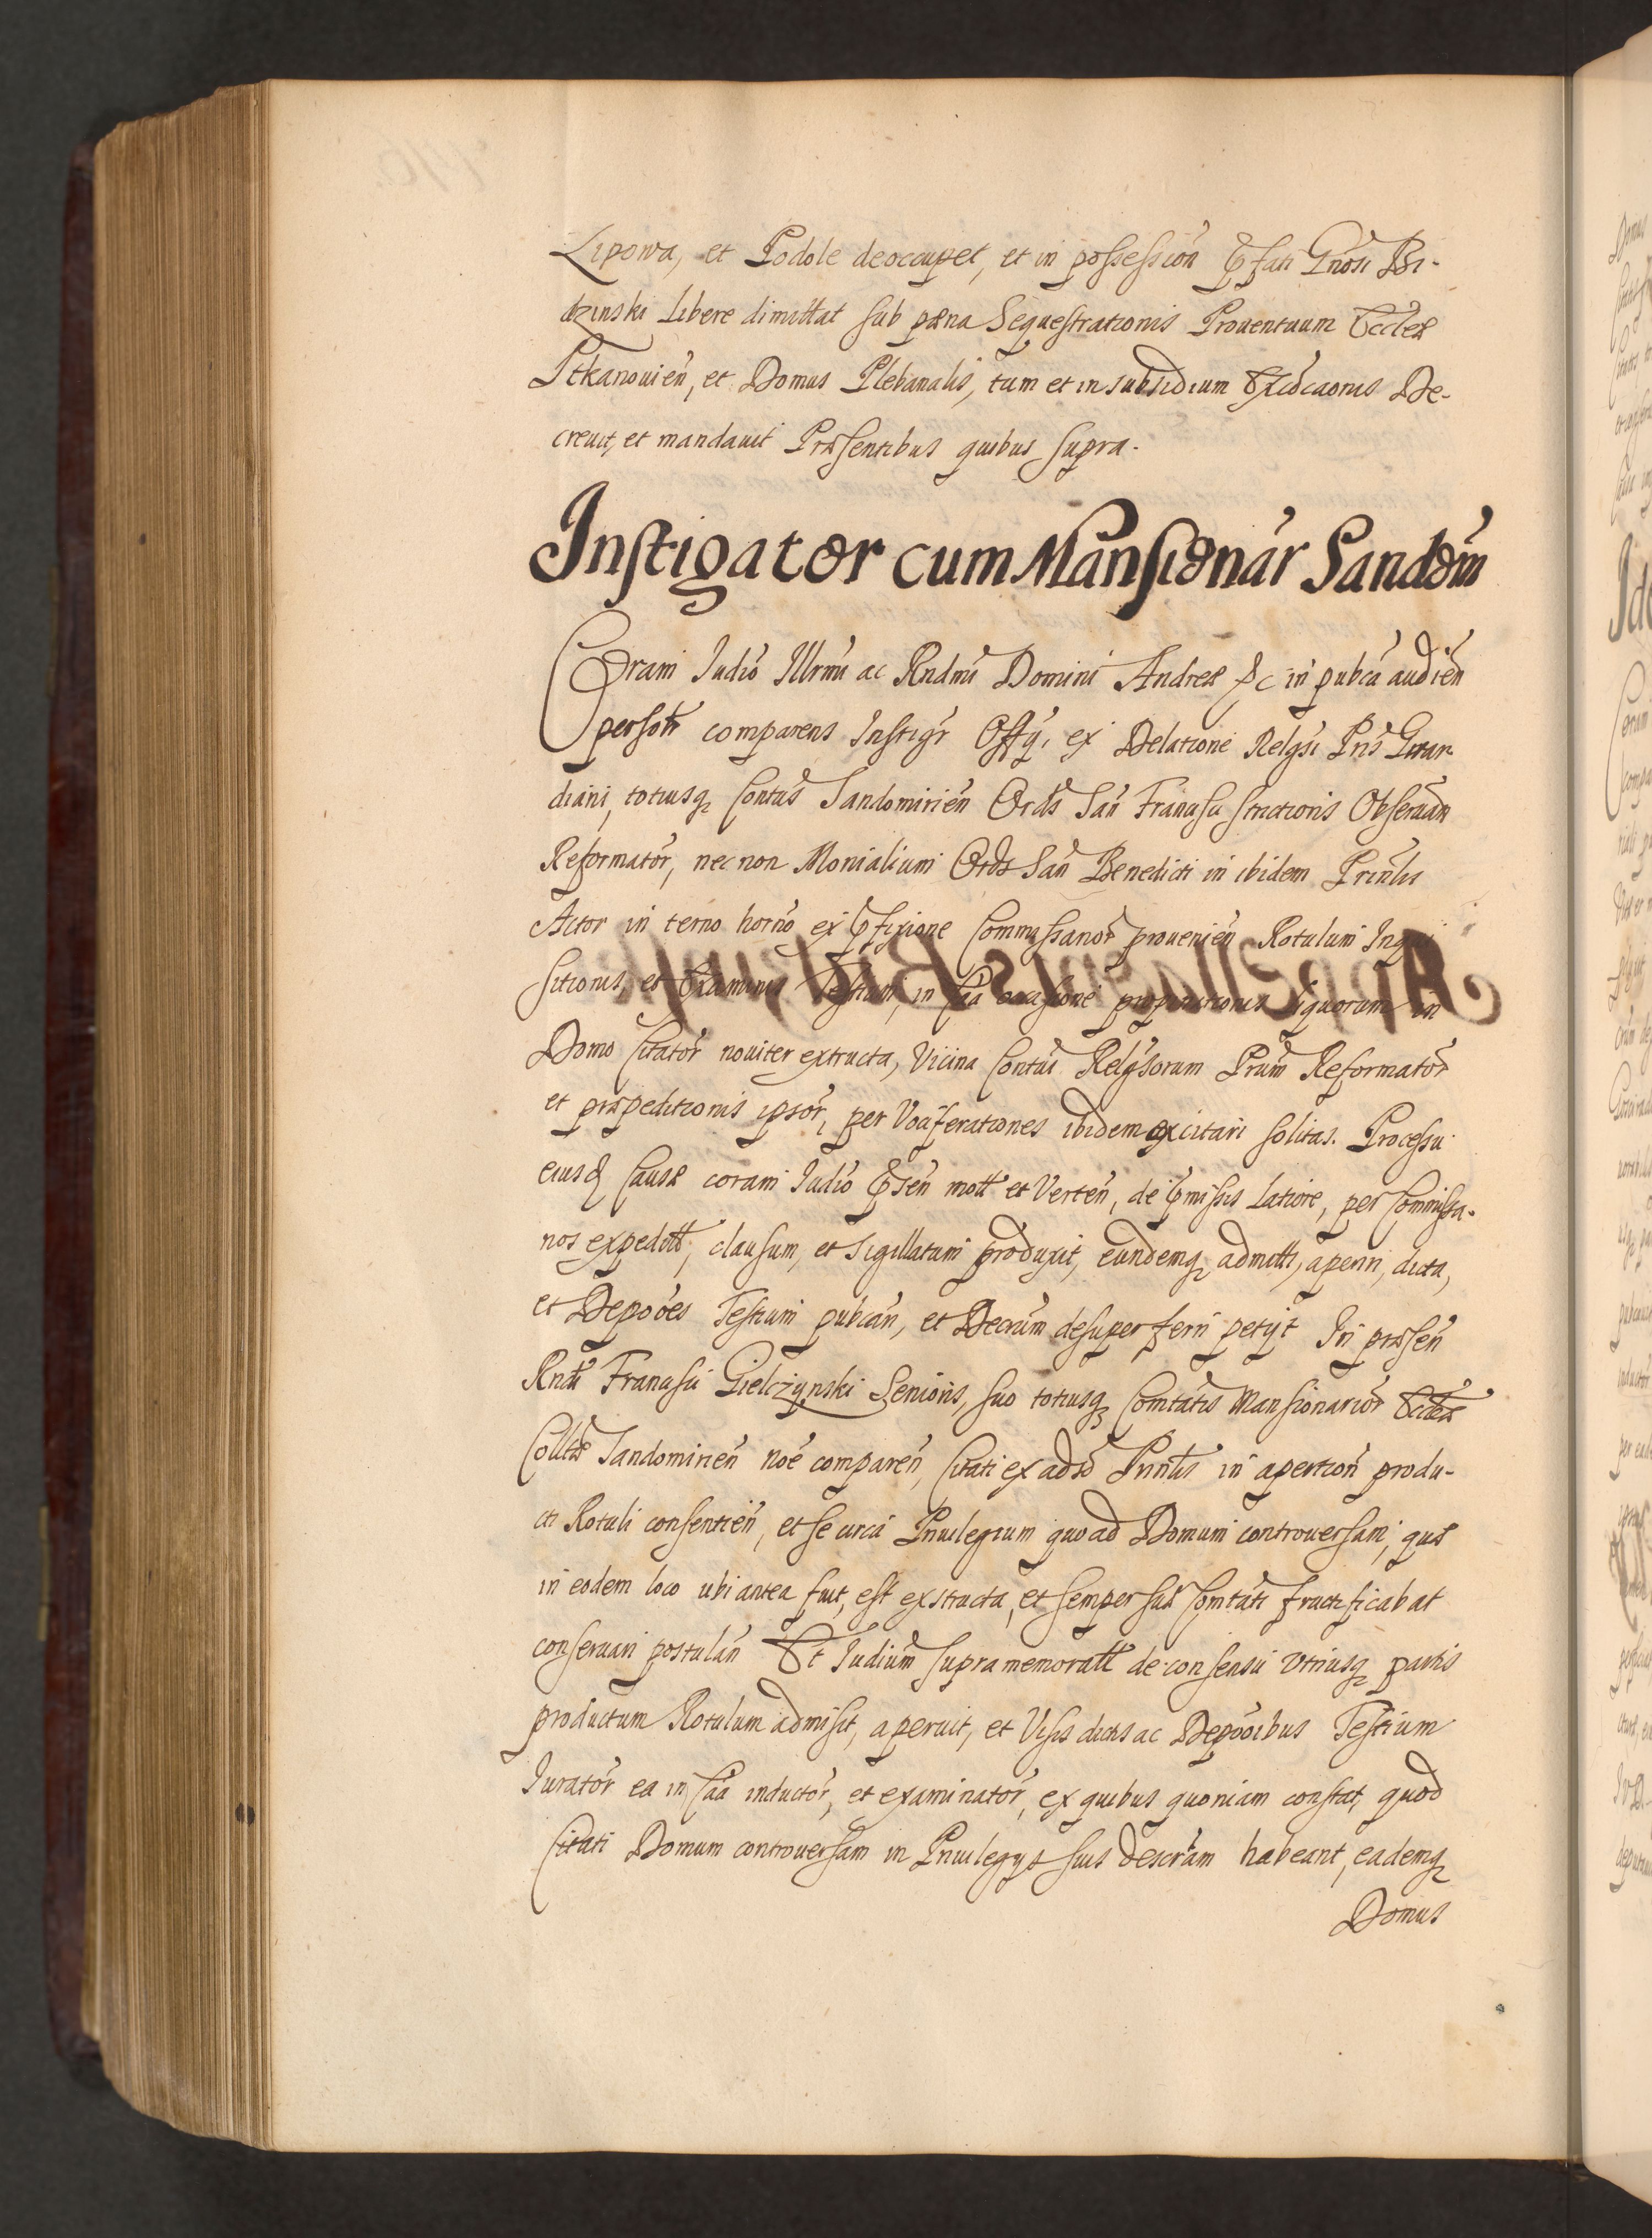 Lipowa, et Podole deoccupet, et in possession̄ p̄fati Gn̄osi Bi-
dzinski Libere dimittat sub pæna Sequestrationis Prouentuum Eccleæ
Ptkanouien̄, et Domus Plebanalis, tum et in subsidium De-
creuit, et mandauit Præsentibus quibus supra.
Instigator cum Mansionar̄ Sandom̄
Coram Iudiō Illrmi ac Rndmi Domini Andreæ &c in pubca audien̄
personr̄ comparens Instigr̄ Offÿ, ex Delatione Relgsi Pris Guar-
diani, totiusq Contus Sandomirien̄ Ord̄s San̄ Francisci strictioris Obseruan̄
Reformator̄, nec non Monialium Ord̄s San̄ Benedicti in ibidem Prinlis
Actor in terno horno ex p̄fixione Commissarior̄ prouenien̄ Rotulum Inqui
sitionis, et Examinis Testium, in Cãa occasione propinationis liquorum in
Domo Citator̄ nouiter extructa, Vicina Contui Relgsorum Prum Reformator̄
et præpeditionis ipsor̄, per Vociferationes ibidem excitari solitas. Processu
eiusd Causæ coram Iudiō p̄sen̄ mott et Verten̄, de p̄missis Latiore, per Commissa-
rios expeditt, clausum, et sigillatum produxit, eundemq admitti, aperiri, dicta,
et Depoões Testium pubcan̄, et Decrum desuper ferri petÿt In præsen̄
Rndi Francisci Gielczynski Senioris, suo totiusq Comtatis Mansionarior̄ Eccleæ
Colltæ Sandomirien̄ noẽ comparen̄, Citati ex adso Prinlis in apertion̄ produ-
cti Rotuli consentien̄, et se circa Priuilegium quoad Domum controuersam, quæ
in eodem loco ubi antea fuit, est exstructa, et semper suæ Comtati fructificabat
conseruari postulan̄ Et Iudium supra memoratt de consensu Vtriusq partis
productum Rotulum admisit, aperuit, et Visis dictis ac Depoõibus Testium
Iurator̄ ea in Cãa inductor̄, et examinator̄, ex quibus quoniam constat, quod
Citati Domum controuersam in Priuilegÿs suis descrãm habeant, eademq
Domus